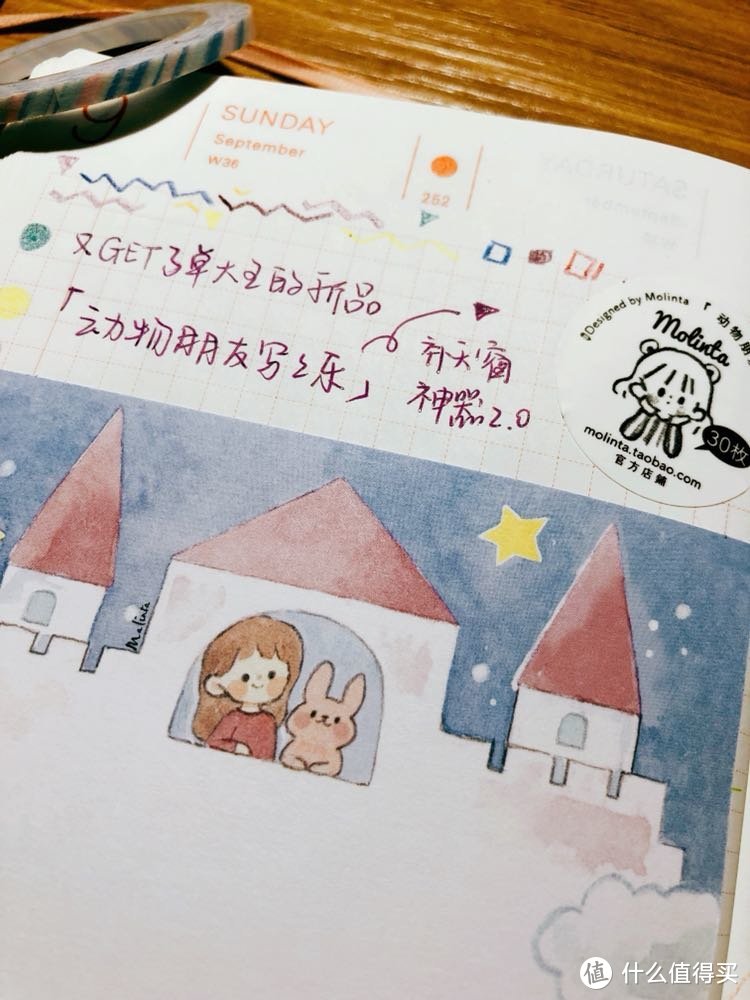 9
SUNDAY
September
W36
252
又GET了单大王的新品
「动物朋友写々乐」
补天窗
神器2.0
Designed by Molinta 「动物朋
Molinta
30枚
molinta.taobao.com
官方店铺
Molinta
值 什么值得买